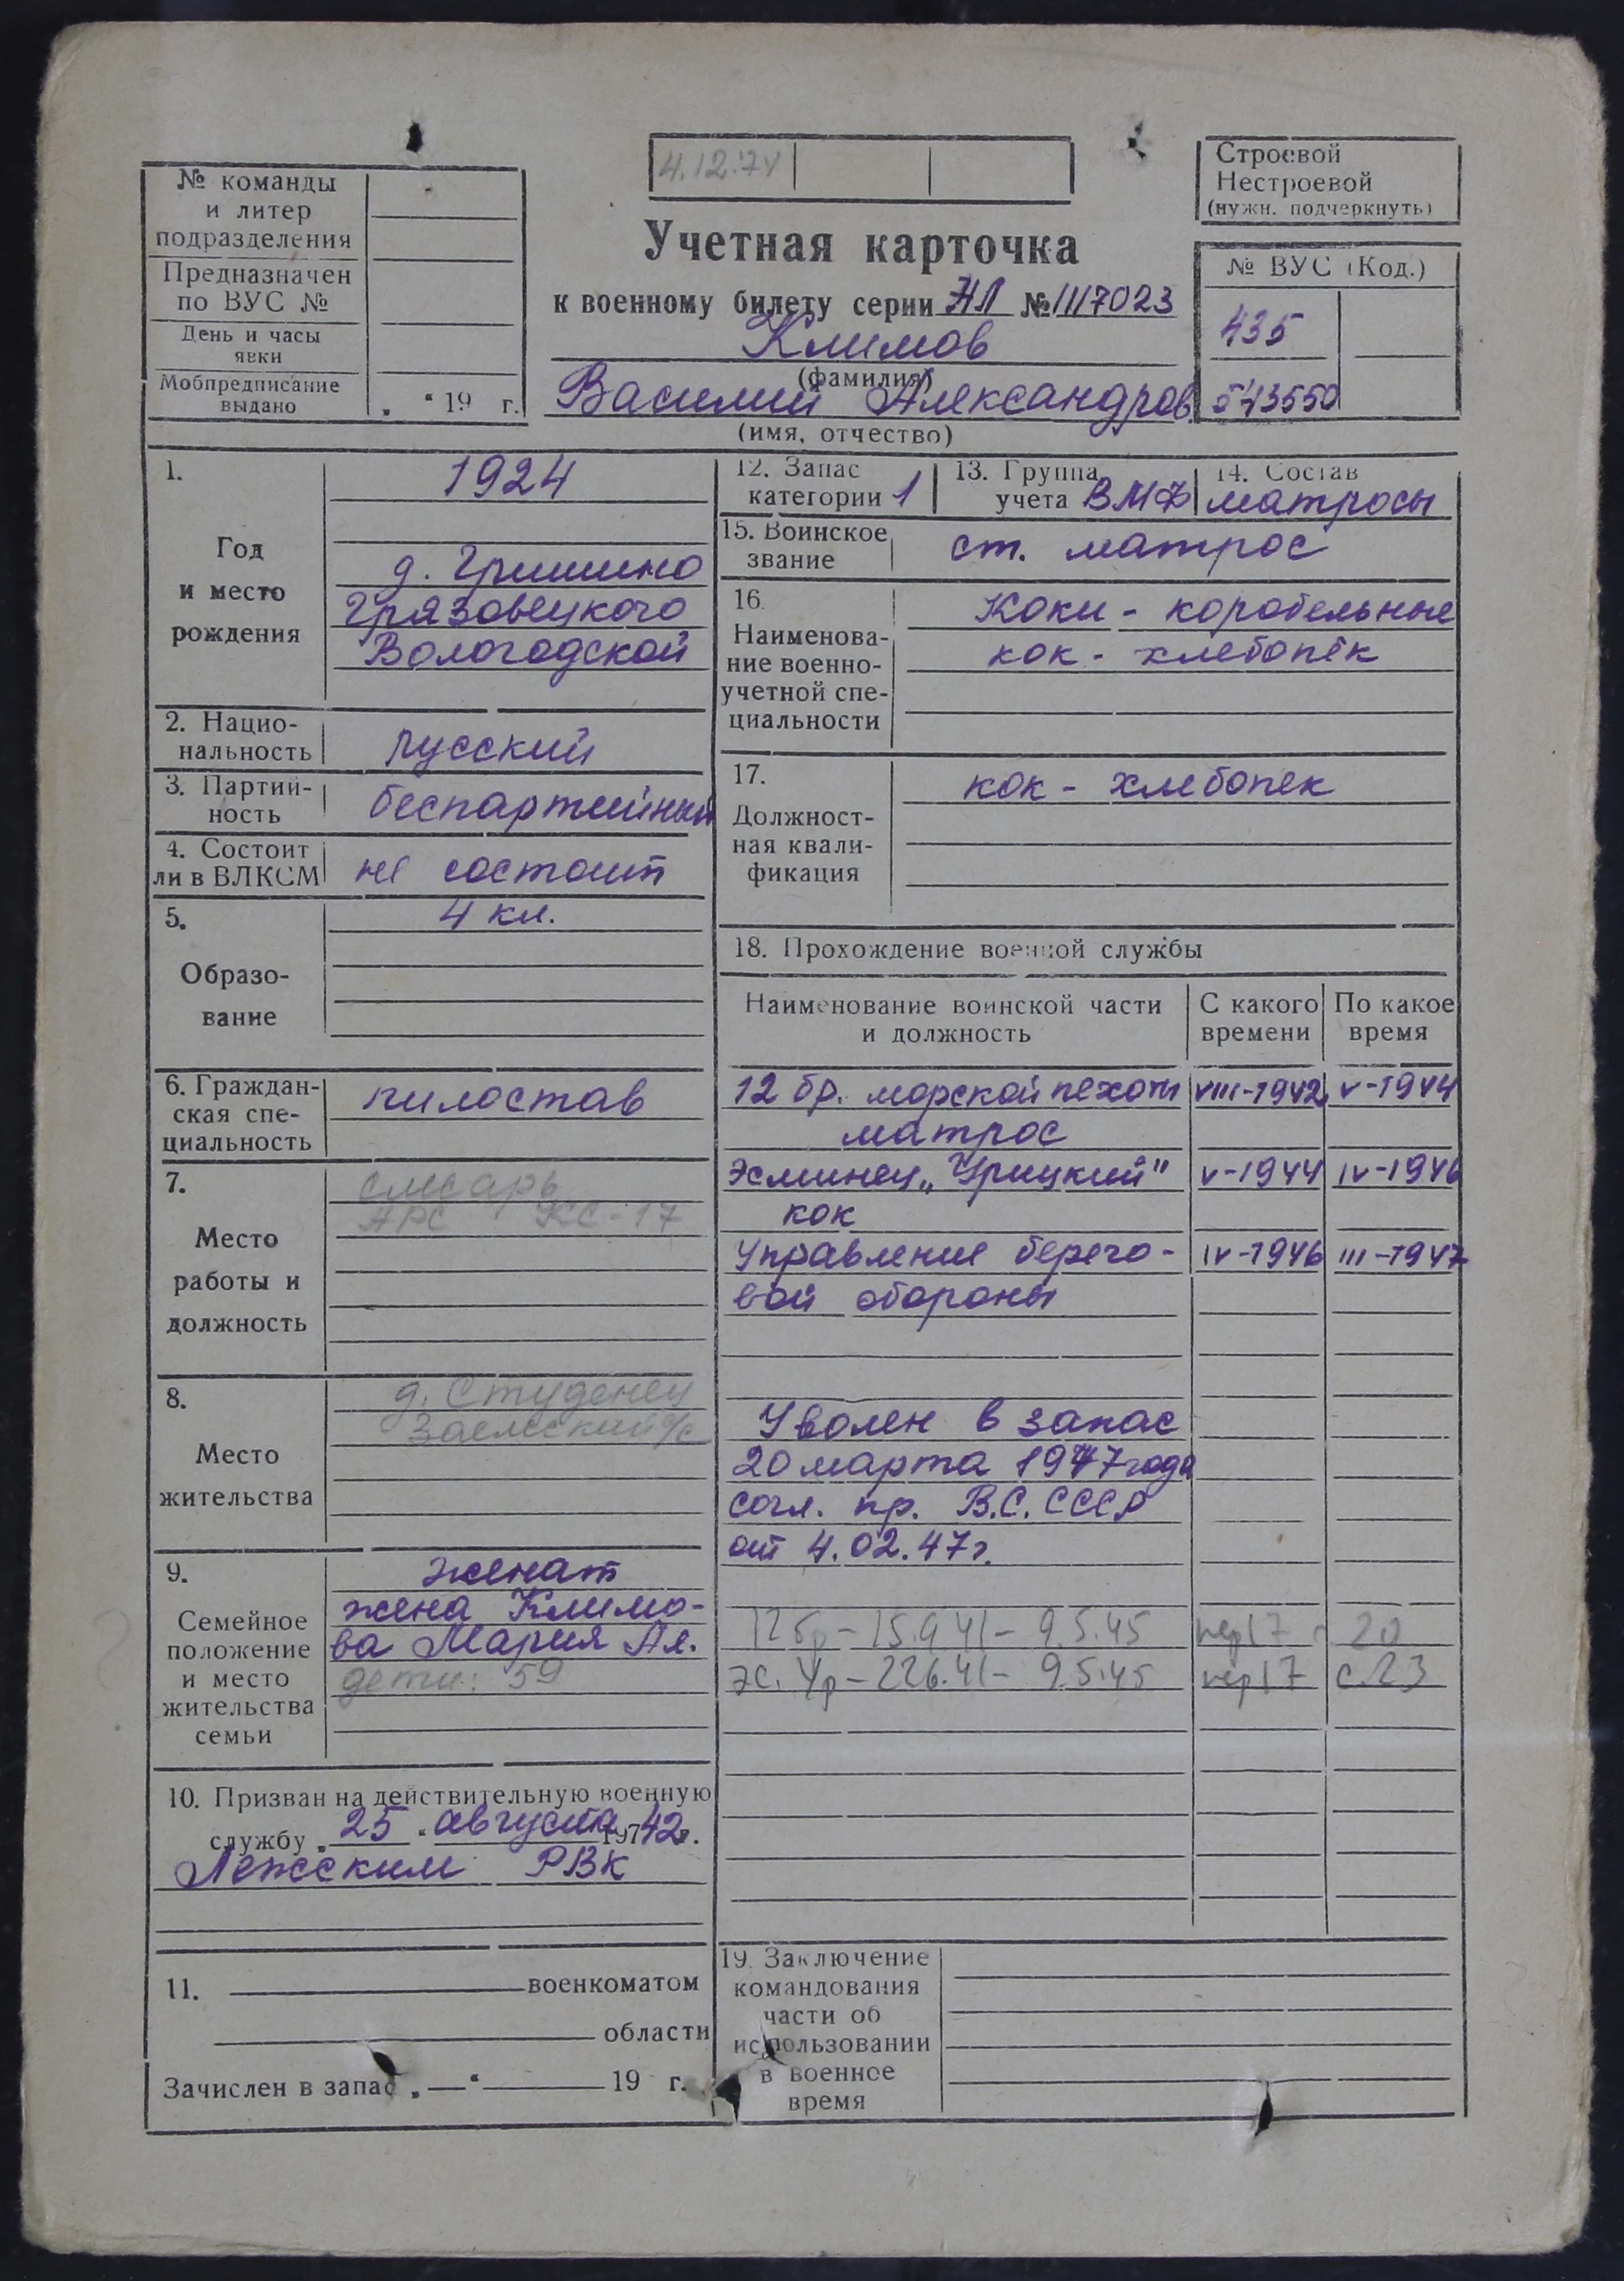 4.12.74
№ команды
и литер
подразделения
Предназначен
по ВУС №
День и часы
явки
Мобпредписание
выдано „ “ 19 г.
Учетная карточка
к военному билету серии НЛ № 1117023
Климов
(фамилия)
Василий Александров
(имя, отчество)
Строевой
Нестроевой
(нужн. подчеркнуть)
№ ВУС (Код.)
435
1.
Год
и место
рождения
1924
д. Гришино
Грязовецкого
Вологодской
2. Нацио-
нальность
русский
3. Партий-
ность
беспартийный
4. Состоит
ли в ВЛКСМ
не состоит
5.
Образо-
вание
4 кл.
6. Граждан-
ская спе-
циальность
пилостав
7.
Место
работы и
должность
слесарь
АРС КС-17
8.
Место
жительства
д. Студенец
Заемский с/с
9.
Семейное
положение
и место
жительства
семьи
женат
жена Климо-
ва Мария Ал.
дети: 59
10. Призван на действительную военную
службу „25“ августа 197 42 г.
Лежским РВК
11. военкоматом
области
Зачислен в запас „—“ 19 г.
12. Запас
категории 1
13. Группа
учета ВМФ
14. Состав
матросы
15. Воинское
звание
ст. матрос
16.
Наименова-
ние военно-
учетной спе-
циальности
Коки - коробельные
кок - хлебопёк
17.
Должност-
ная квали-
фикация
кок - хлебопек
18. Прохождение военной службы
Наименование воинской части
и должность
С какого
времени
По какое
время
12 бр. морской пехоты VIII-1942 V-1944
матрос
Эсминец „Урицкий" V-1944 IV-1946
кок
Управление берего- IV-1946 III-1947
вой обороны
Уволен в запас
20 марта 1947 года
согл. пр. В.С. СССР
от 4.02.47 г.
12 бр - 15.9.41 - 9.5.45 пер 17 20
эс. Ур - 22.6.41 - 9.5.45 пер 17 с.23
19. Заключение
командования
части об
использовании
в военное
время